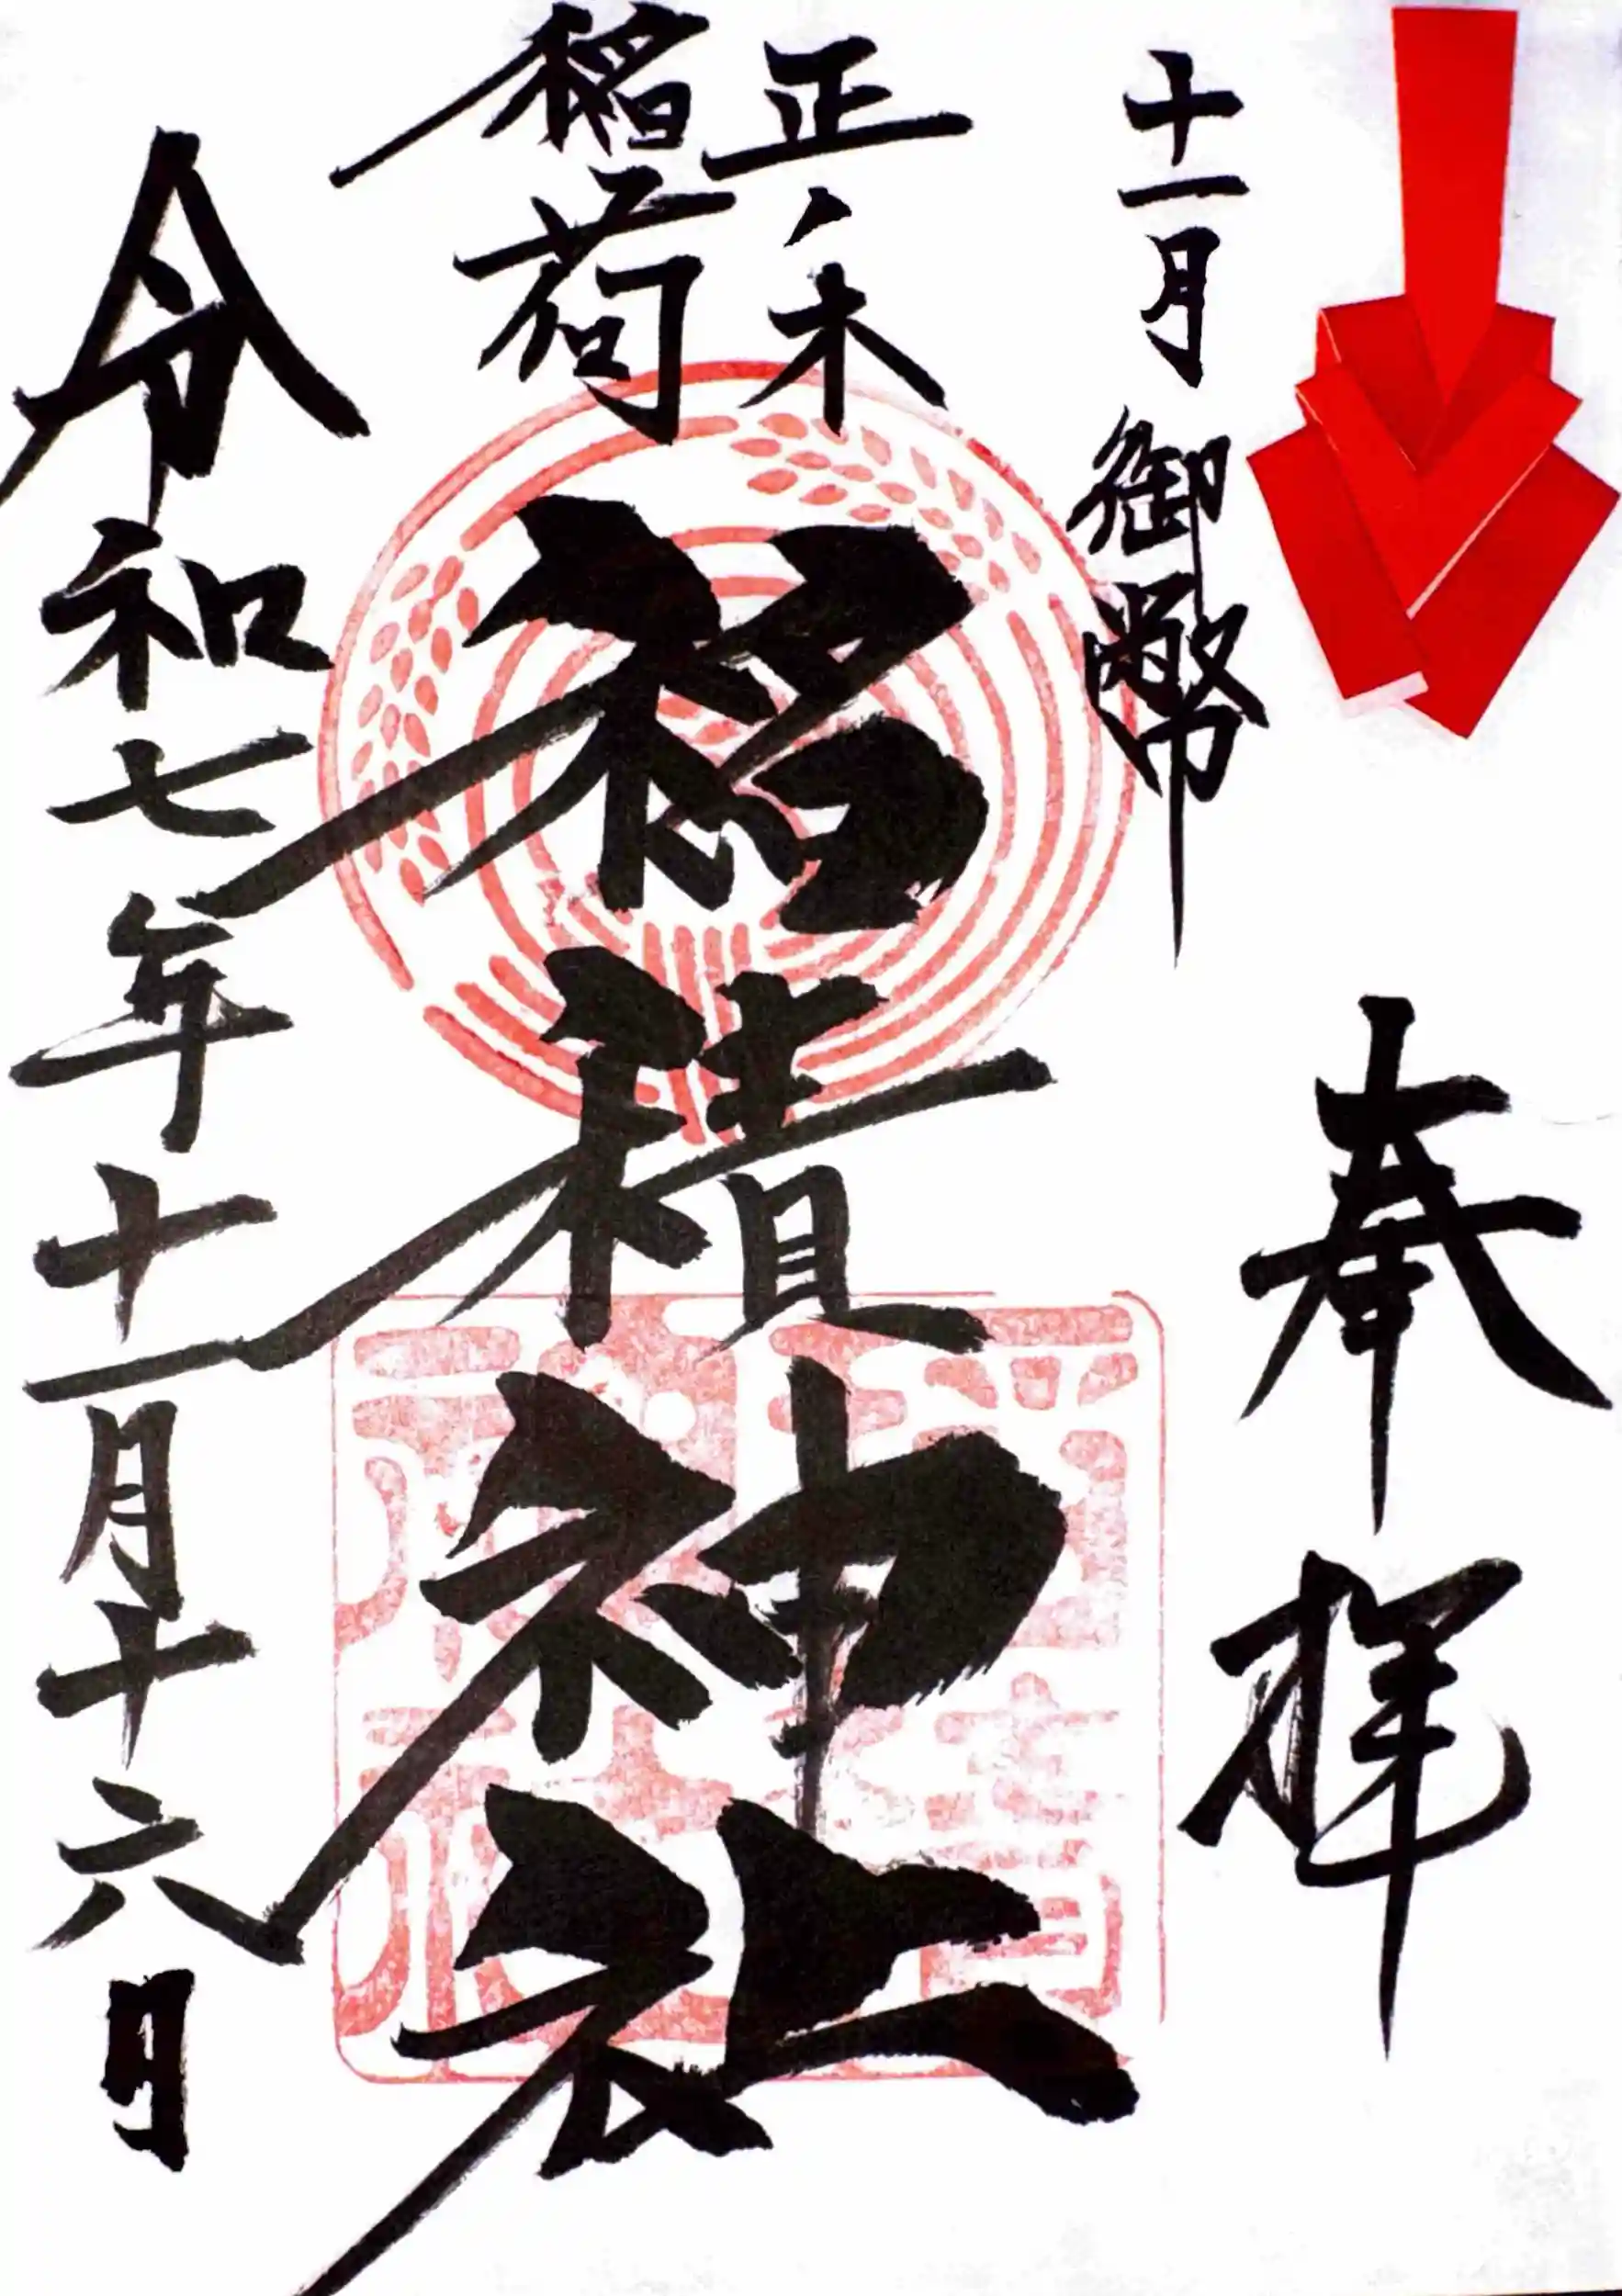 十一月 御幣
奉拝
正ノ木
稲荷
稲積神社
令和七年十一月十六日